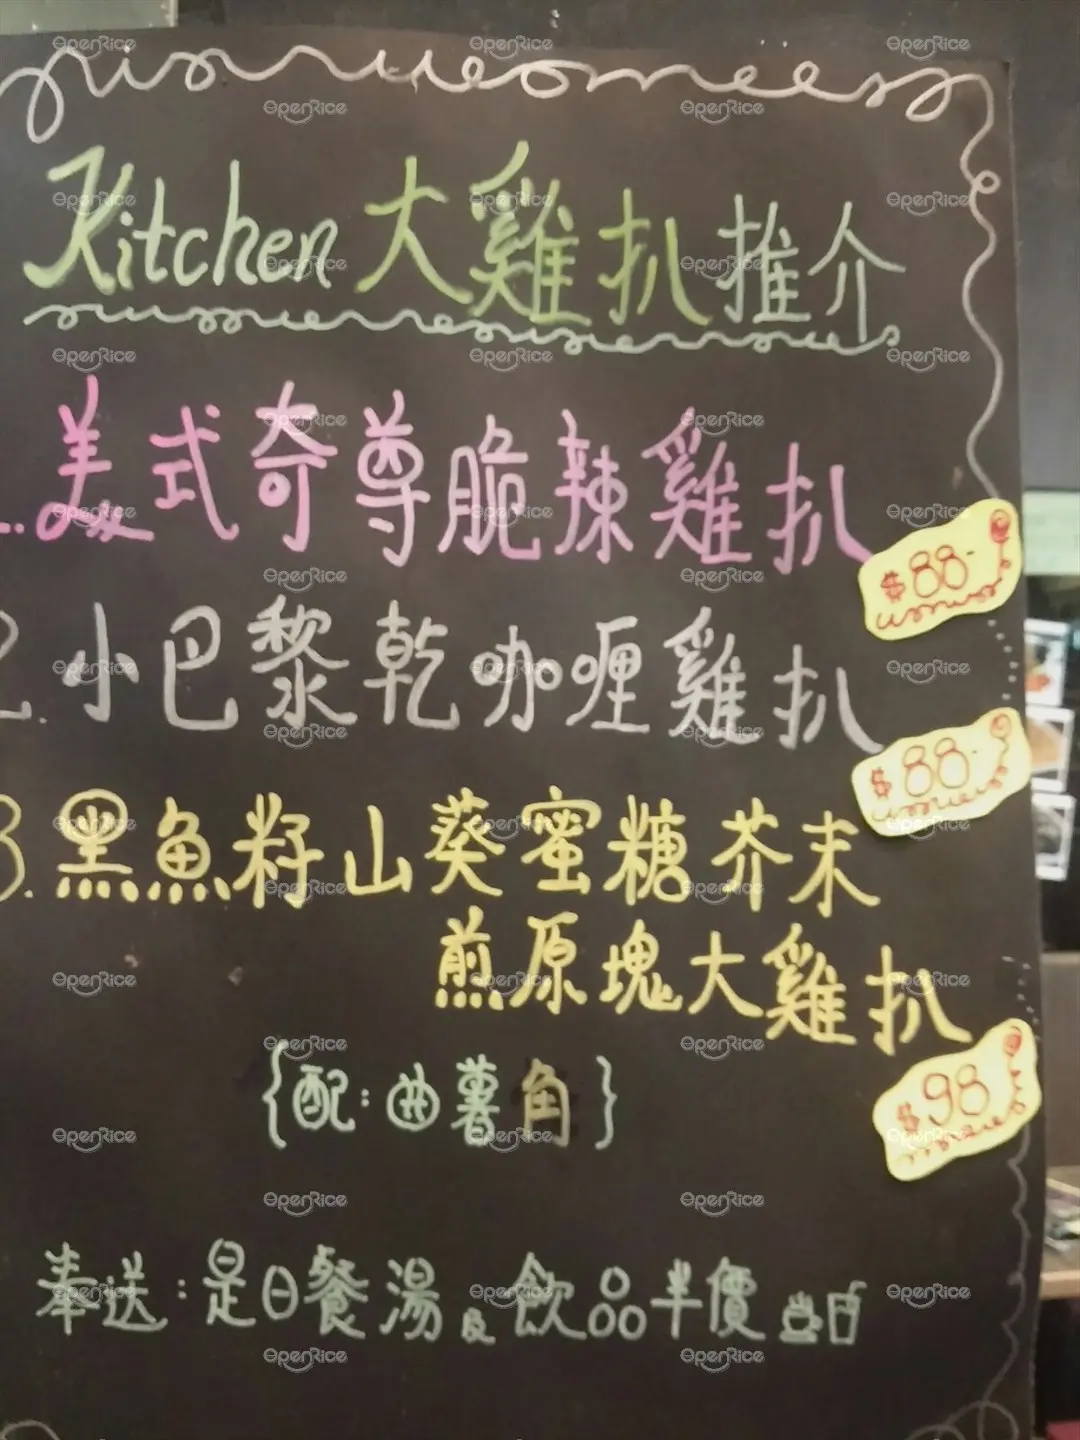 Kitchen 大雞扒推介
美式奇尊脆辣雞扒 $88-
2. 小巴黎乾咖喱雞扒 $88-
3. 黑魚籽山葵蜜糖芥末
煎原塊大雞扒 $98
{配:曲薯角}
奉送:是日餐湯及飲品半價